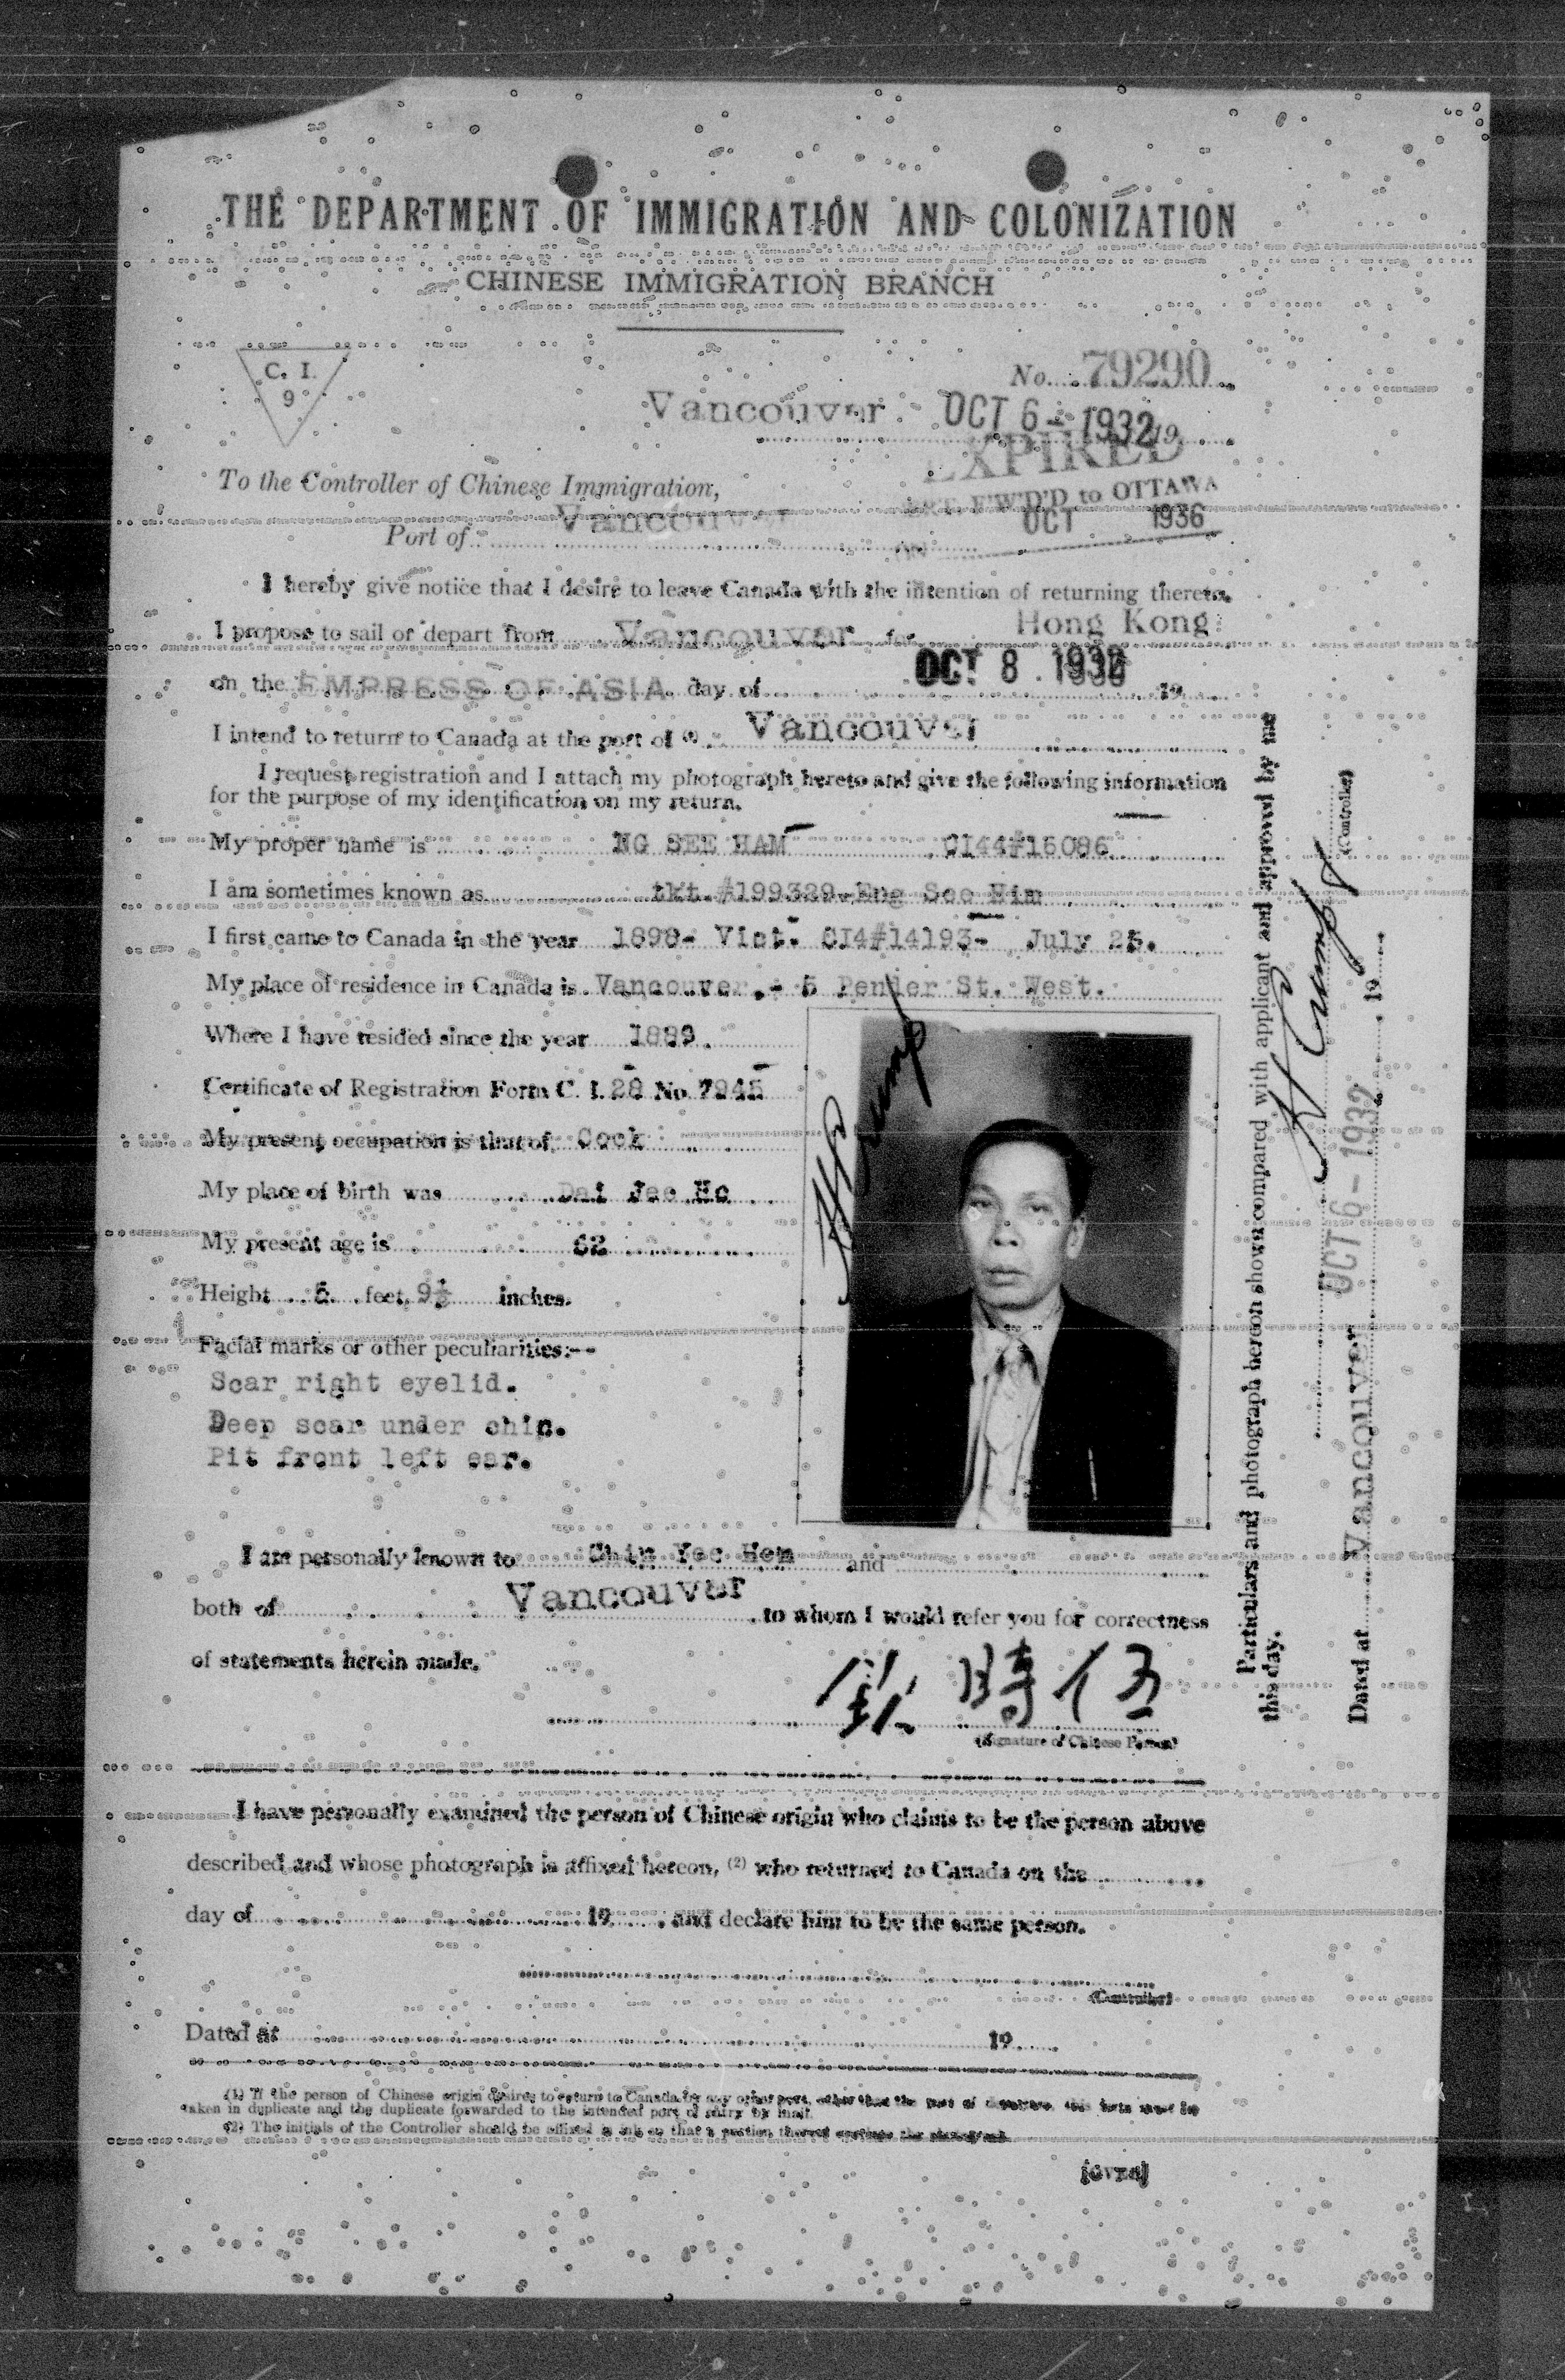 THE DEPARTMENT OF IMMIGRATION AND COLONIZATION
CHINESE IMMIGRATION BRANCH
C. I.
9
No. 79290
Vancouver OCT 6 - 1932 19
EXPIRED
To the Controller of Chinese Immigration,
F'W'D'D to OTTAWA
Port of Vancouver
OCT 1936
I hereby give notice that I desire to leave Canada with the intention of returning thereto.
I propose to sail or depart from Vancouver for Hong Kong
on the EMPRESS OF ASIA day of OCT 8 1932 19
I intend to return to Canada at the port of (1) Vancouver
I request registration and I attach my photograph hereto and give the following information
for the purpose of my identification on my return.
My proper name is NG SEE HAM CI44#16086
I am sometimes known as tkt. #199329-Eng See Him
I first came to Canada in the year 1898- Vict. CI4#14193- July 25.
My place of residence in Canada is Vancouver,- 5 Pender St. West.
Where I have resided since the year 1899.
Certificate of Registration Form C. I. 28 No. 7945
My present occupation is that of Cook
My place of birth was
My present age is 62
Height 5 feet, 9½ inches.
Facial marks or other peculiarities:--
Scar right eyelid.
Deep scar under chin.
Pit front left ear.
I am personally known to Chin Yee Hem and
both of Vancouver, to whom I would refer you for correctness
of statements herein made.
欽 時 伍
(Signature of Chinese Person)
I have personally examined the person of Chinese origin who claims to be the person above
described and whose photograph is affixed hereon, (2) who returned to Canada on the
day of 19 , and declare him to be the same person.
(Controller)
Dated at 19
(1) If the person of Chinese origin desires to return to Canada by any other port, other than the port of departure, this form must be
taken in duplicate and the duplicate forwarded to the intended port of entry by mail.
(2) The initials of the Controller should be affixed in ink so that a portion thereof
[OVER]
Particulars and photograph hereon shown compared with applicant and approved by me
this day.
(Controller)
Dated at Vancouver OCT 6 - 1932 19